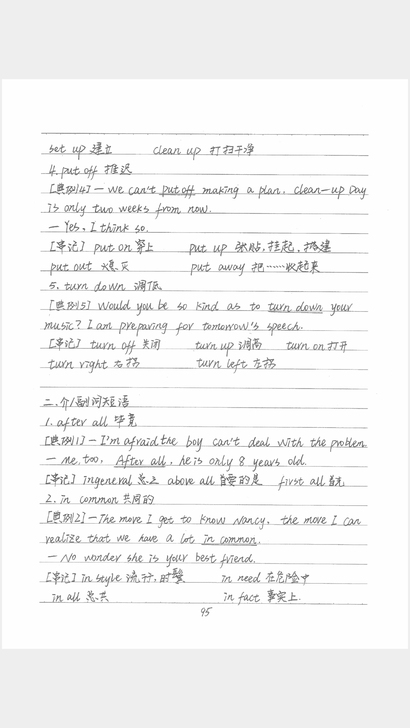 set up 建立 clean up 打扫干净
4. put off 推迟
[典例4] — We can't put off making a plan. Clean-up Day
is only two weeks from now.
— Yes, I think so.
[串记] put on 穿上 put up 张贴,挂起,搭建
put out 熄灭 put away 把……收起来
5. turn down 调低
[典例5] Would you be so kind as to turn down your
music? I am preparing for tomorrow's speech.
[串记] turn off 关闭 turn up 调高 turn on 打开
turn right 右拐 turn left 左拐
二.介/副词短语
1. after all 毕竟
[典例1] — I'm afraid the boy can't deal with the problem.
— Me, too. After all, he is only 8 years old.
[串记] in general 总之 above all 首要的是 first all 首先
2. in common 共同的
[典例2] — The move I get to know Nancy, the move I can
realize that we have a lot in common.
— No wonder she is your best friend.
[串记] in style 流行,时髦 in need 在危险中
in all 总共 in fact 事实上.
95